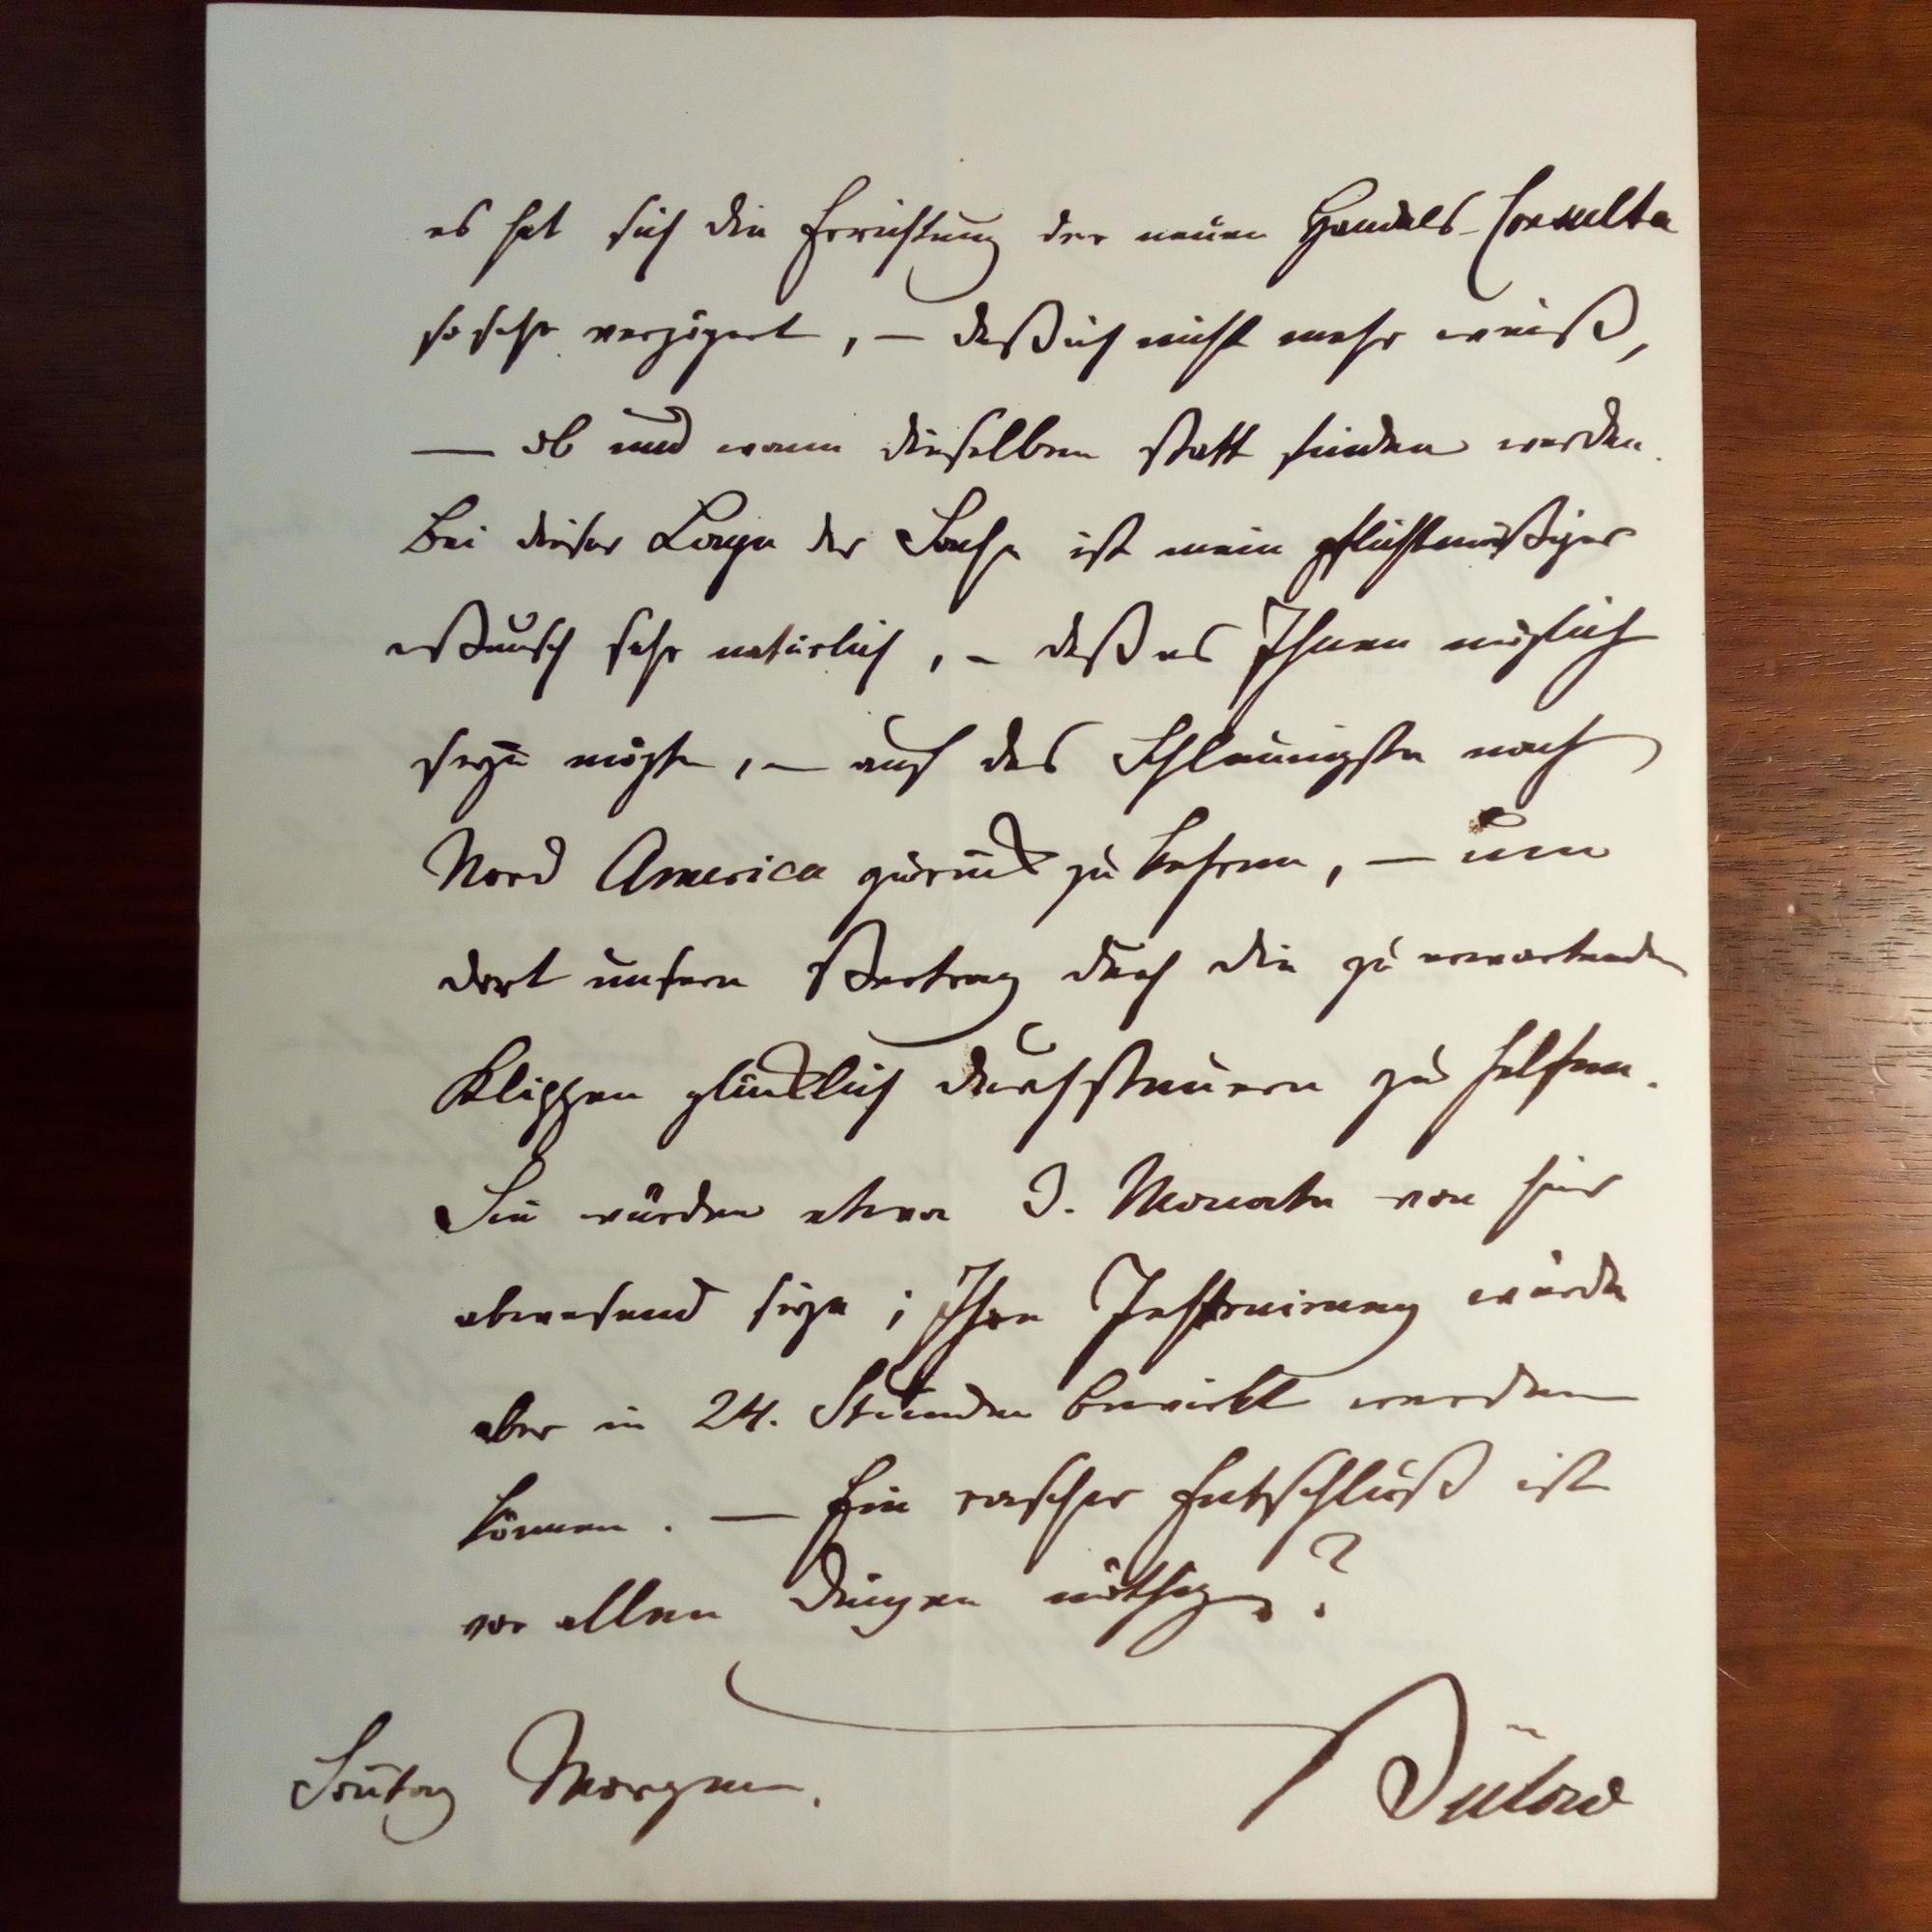 es hat sich die Errichtung der neuen Handels-Consulta
so sehr verzögert, — daß ich nicht mehr weiß,
— ob und wann dieselben statt finden werden.
Bei dieser Lage der Sache ist mein pflichtmäßiger
Wunsch sehr natürlich, – daß es Ihnen möglich
seyn mögte, — auf das Schleunigste nach
Nord America zurück zu kehren, — um
dort unsern Vertrag durch die zu erwartenden
Klippen glücklich durchsteuern zu helfen.
Sie würden etwa 3. Monate von hier
abwesend seyn; Ihre Instruirung würde
aber in 24. Stunden bewirkt werden
können. — Ein rascher Entschluß ist
vor allen Dingen nöthig?
Sontag Morgen.
Bülow